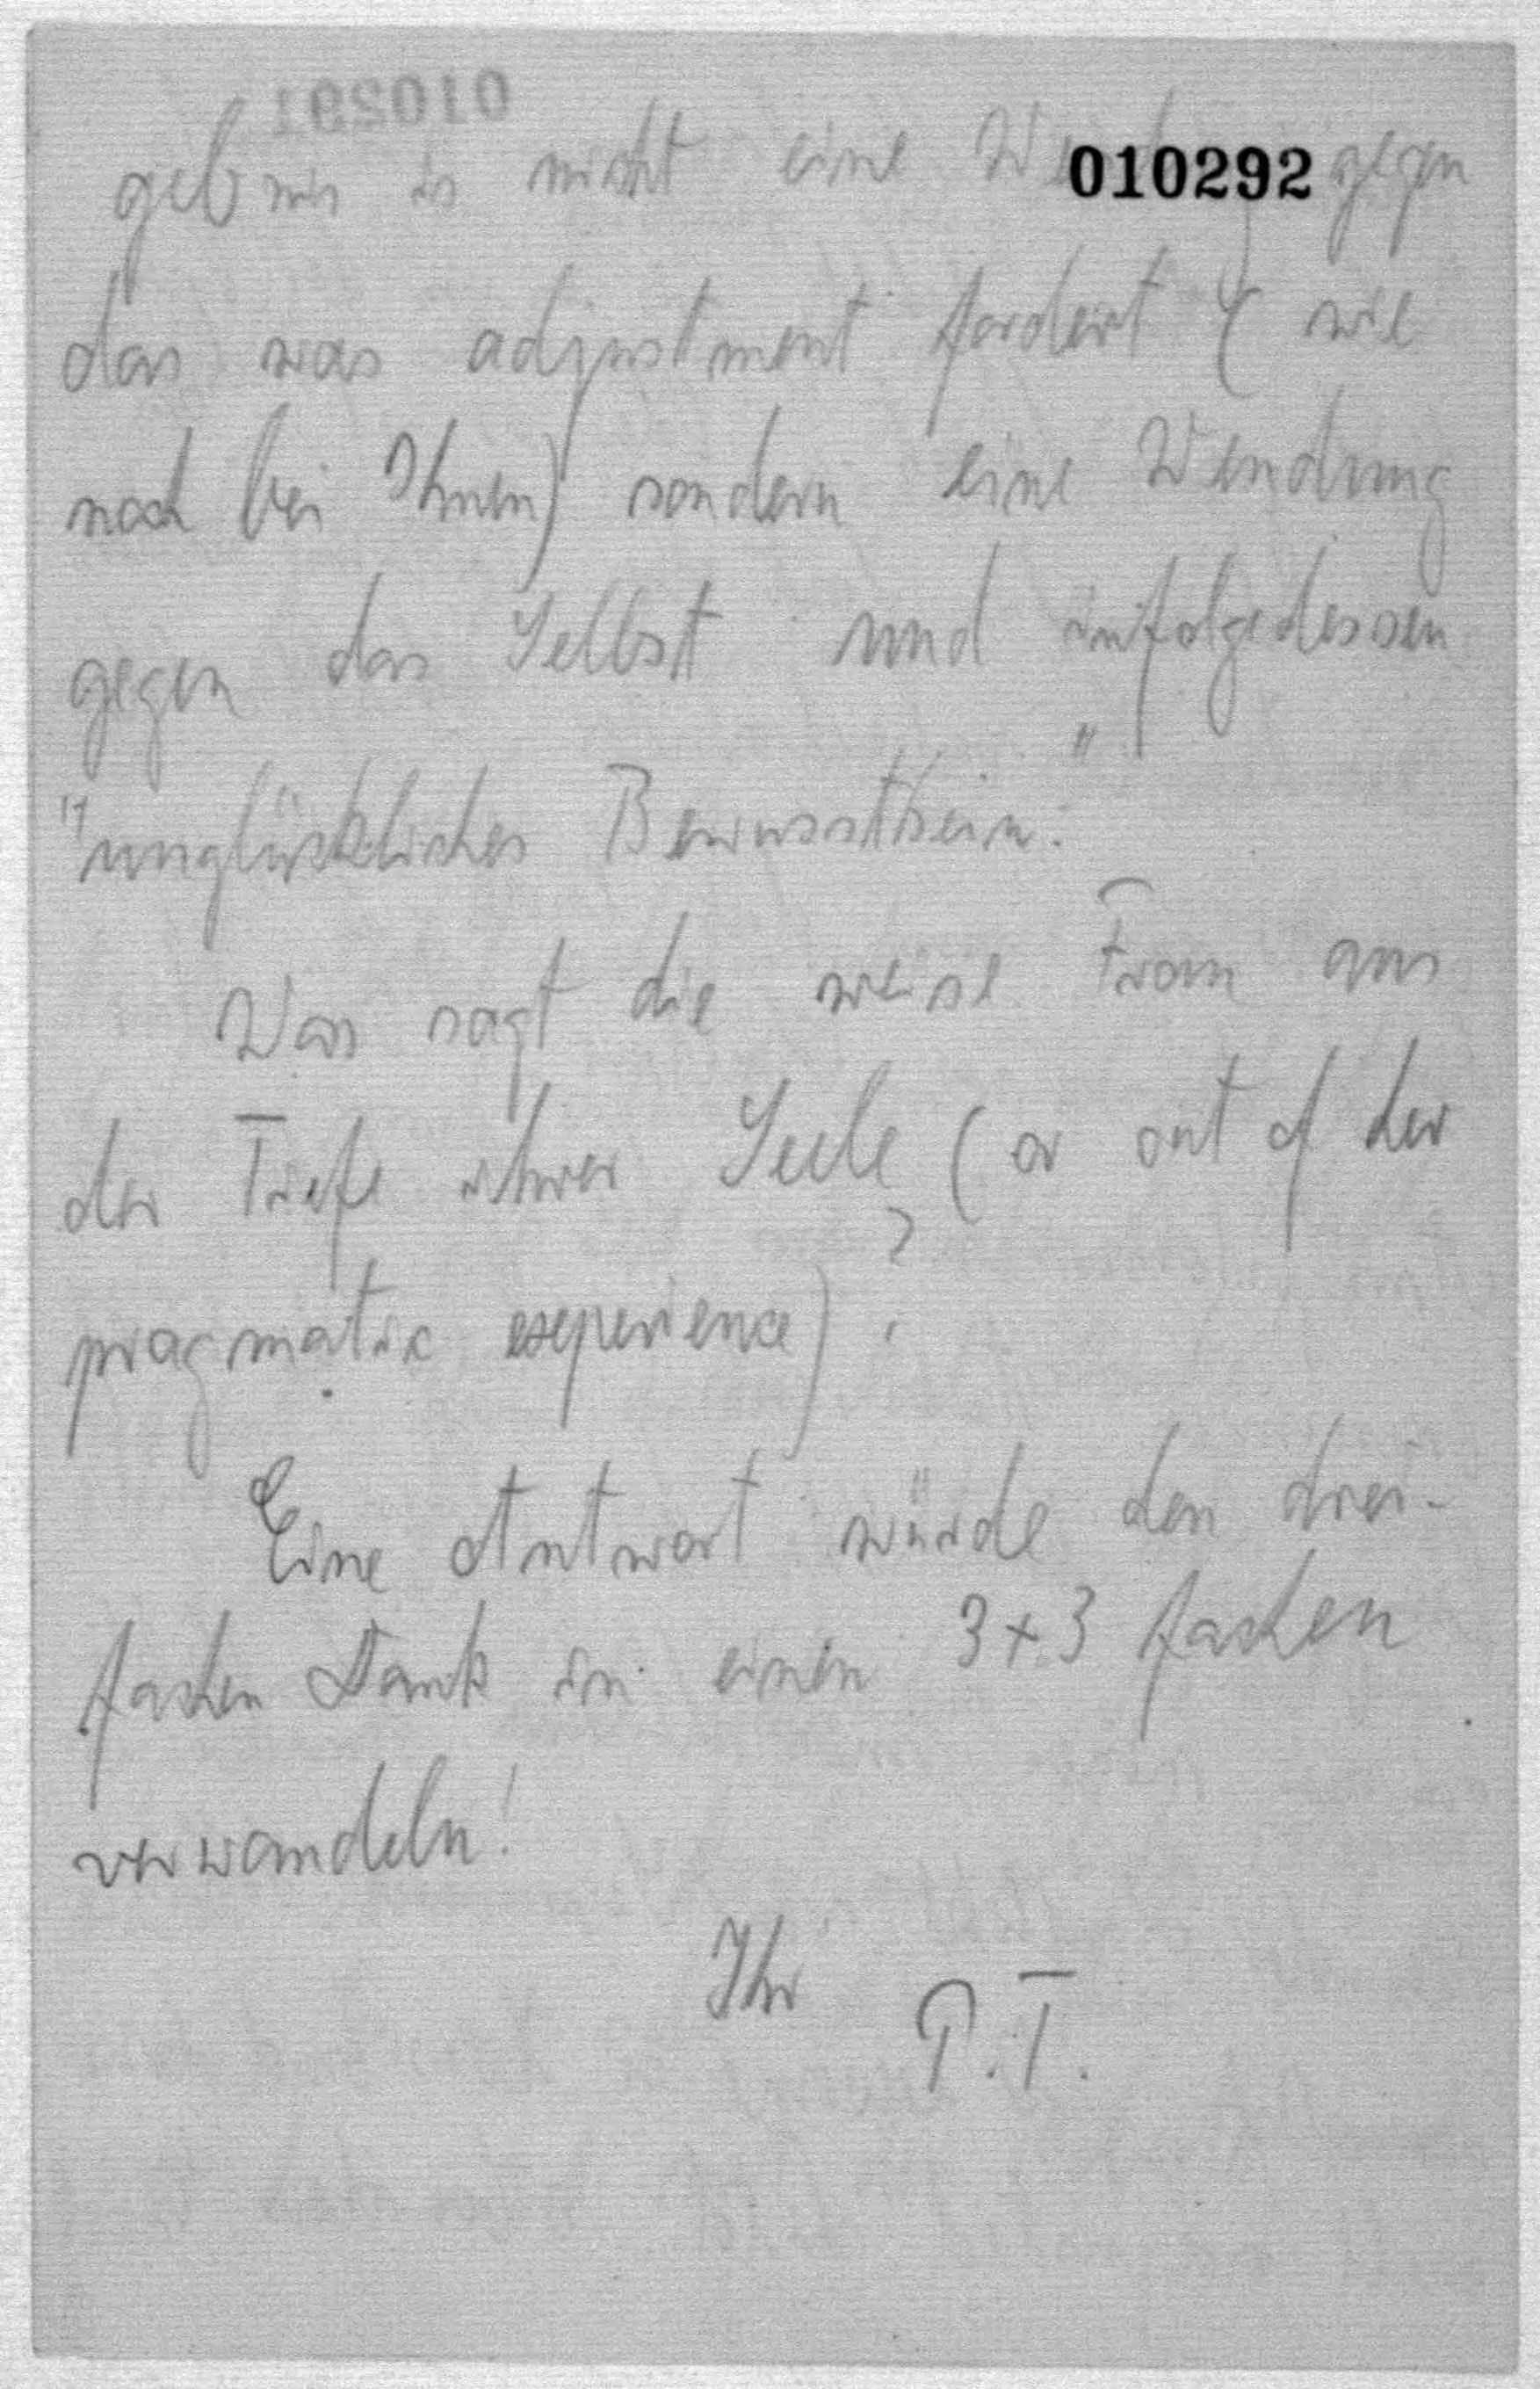 010291
010292
gebnis is nicht eine gegen
das was adjustment fordert (wie
noch bei Ihnen) sondern eine Wendung
gegen das Selbst und infolgedessen
"unglückliches Bewusstsein."
Was sagt die weise Frau aus
der Tiefe ihrer Seele (or out of her
pragmatic experience)?
Eine Antwort würde den drei-
fachen Dank in einen 3 x 3 fachen
verwandeln!
Ihr P.T.